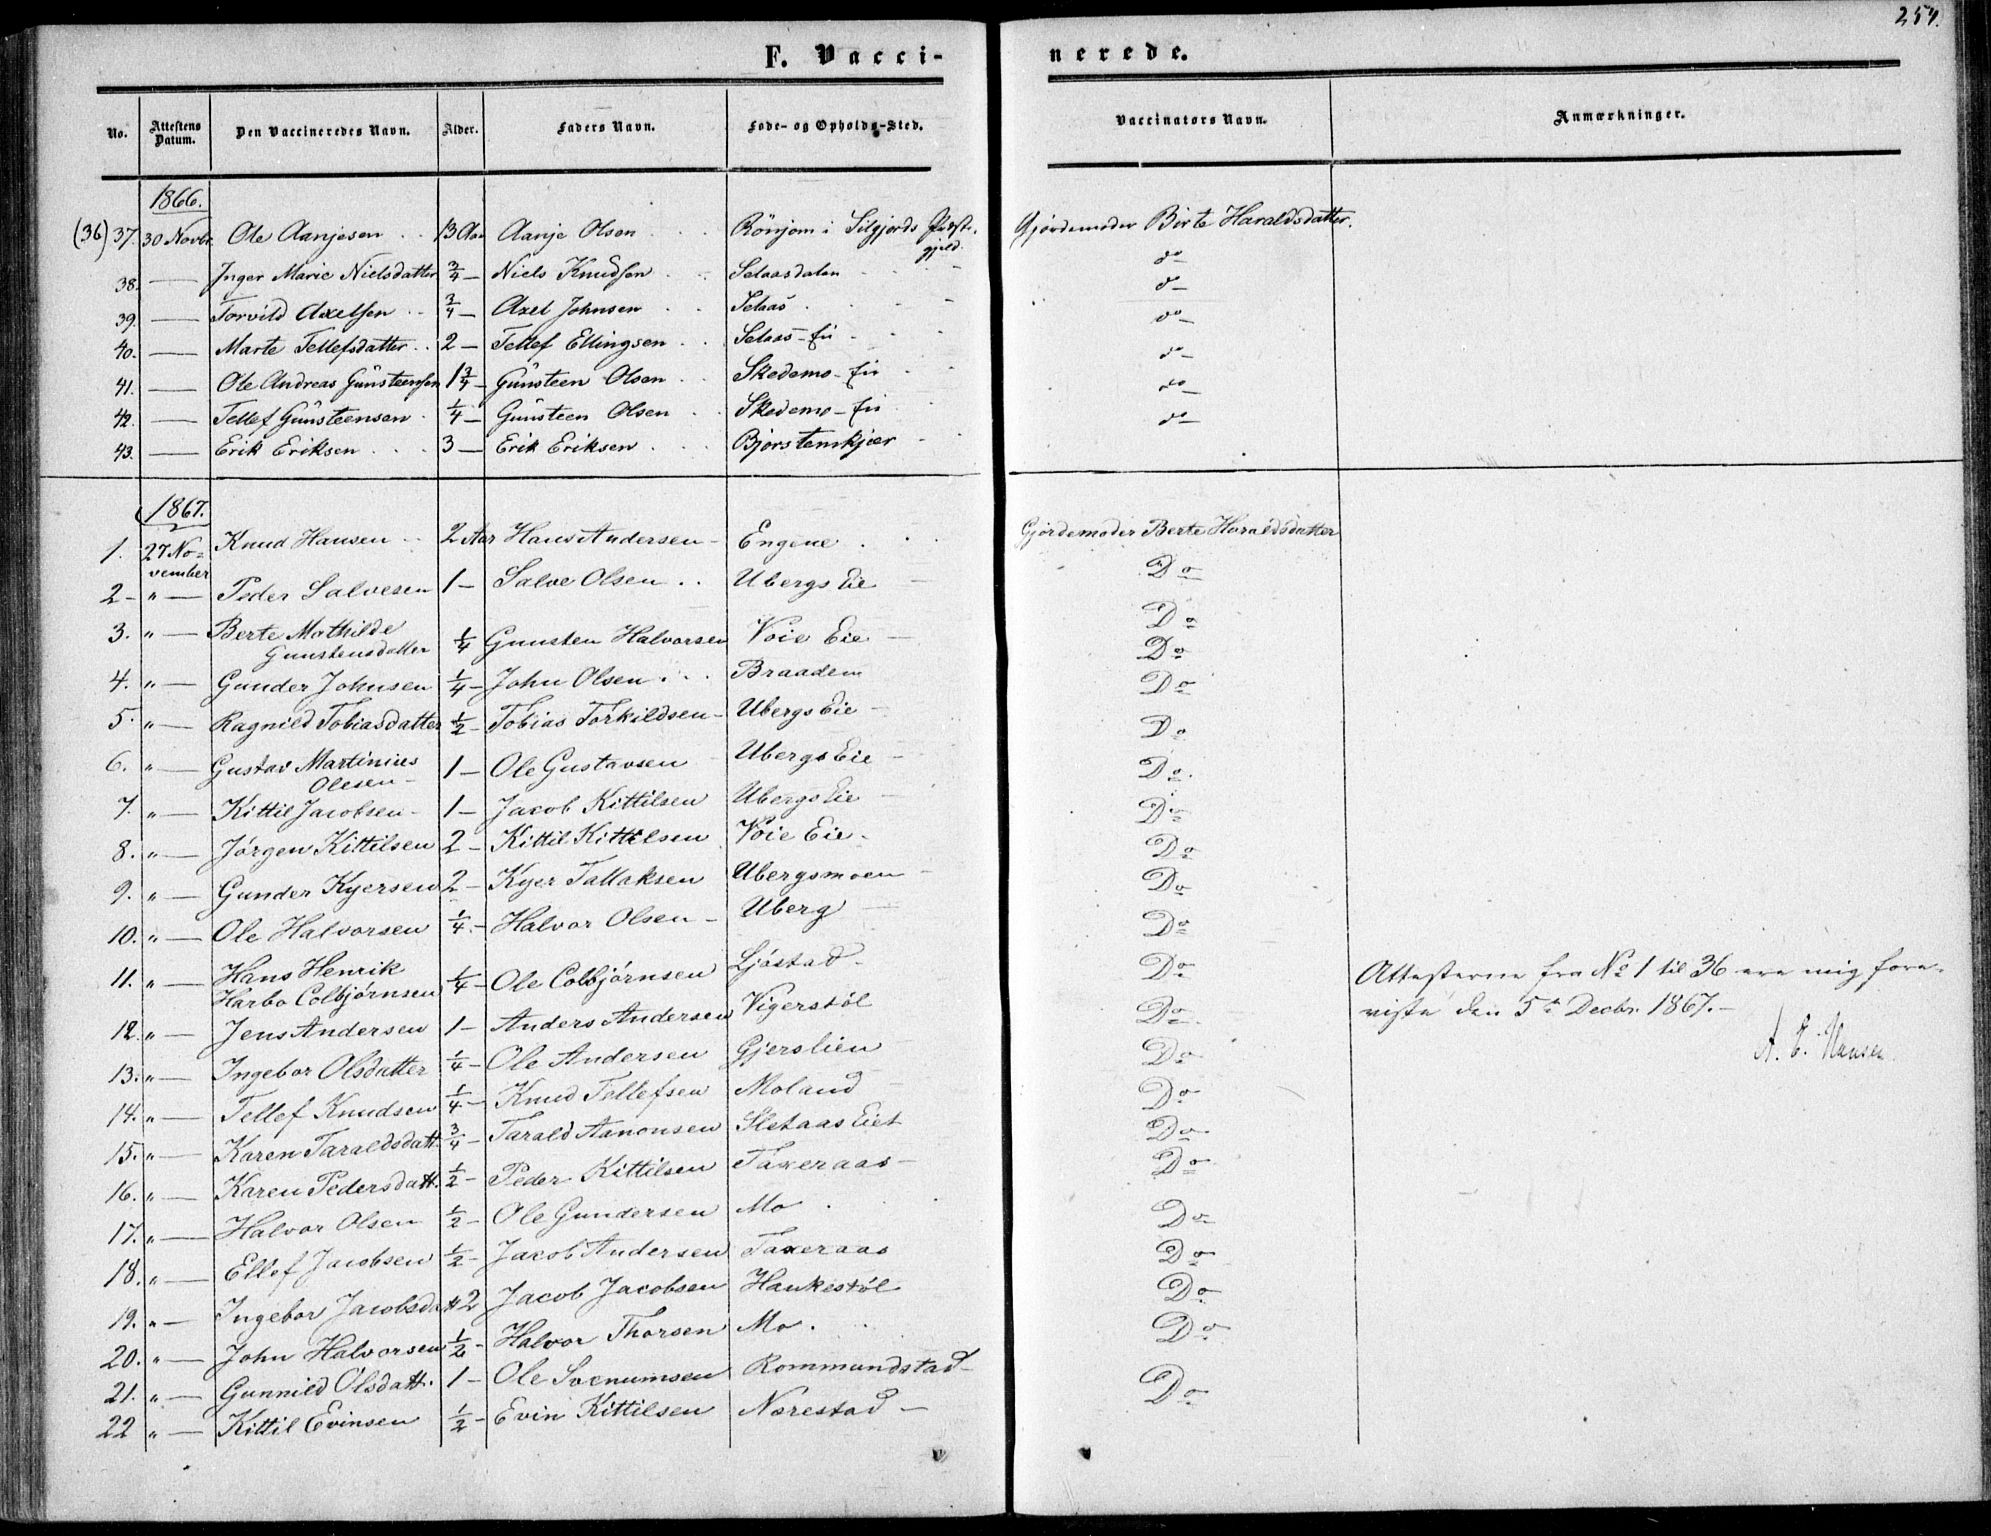 254.
F. Vacci-nerede.
No. Attestens Datum. Den Vaccineredes Navn. Alder. Faders Navn. Føde- og Opholds-Sted. Vaccinators Navn. Anmærkninger.
1866.
(36) 37. 30 Novbr. Ole Aanjesen 13 Aar Aanje Olsen Rönjom i Silgjords Præste-gjeld. Gjördemoder Birte Haraldsdatter.
38. — Inger Marie Nielsdatter 3/4 — Niels Knudsen Selaasdalen do
39. — Torvild Axelsen 3/4 — Axel Johnsen Selaas do
40. — Marte Tellefsdatter 2 — Tellef Ellingsen Selaas-Eie do
41. — Ole Andreas Gunsteensen 1 3/4 — Gunsteen Olsen Skedemo-Eie do
42. — Tellef Gunsteensen 1/4 — Gunsteen Olsen Skedemo-Eie do
43. — Erik Eriksen 3 — Erik Eriksen Bjorstenskjær do
1867.
1. 27 No-vember Knud Hansen 2 Aar Hans Andersen Engene Gjördemoder Berte Haraldsdatter
2 " — Peder Salvesen 1 — Salve Olsen Ubergs Eie Do
3. " — Berte Mathilde Gunstensdatter 1/4 Gunsten Halvorsen Voie Eie Do
4. " — Gunder Johnsen 1/4 — John Olsen Braadem Do
5. " — Ragnild Tobiasdatter 1/2 — Tobias Torkildsen Ubergs Eie Do
6. " — Gustav Martinius Olesen 1 — Ole Gustavsen Ubergs Eie Do
7. " — Kittil Jacobsen 1 — Jacob Kittilsen Ubergs Eie Do.
8. " — Jörgen Kittilsen 2 — Kittil Kittilsen Vöie Eie Do
9. " — Gunder Kyersen 2 — Kyer Tallaksen Ubergsmoen Do
10. " — Ole Halvorsen 1/4 — Halvor Olsen Uberg Do
11. " — Hans Henrik Harbo Colbjörnsen 1/4 — Ole Colbjörnsen Ljöstad Do
Attesterne fra No 1 til 36 ere mig fore-
viste den 5te Decbr. 1867. —
A. E. Hansen.
12. " — Jens Andersen 1 — Anders Andersen Vigerstöl Do
13. " — Ingebor Olsdatter 1/4 — Ole Andersen Gjerslien Do
14. " — Tellef Knudsen 1/4 — Knud Tellefsen Moland Do
15. " — Karen Taraldsdatt. 3/4 — Tarald Aanonsen Sletaas Eiet Do
16. " — Karen Pedersdatt. 1/2 — Peder Kittilsen Taxeraas Do
17. " — Halvor Olsen 1/2 — Ole Gundersen Mo Do
18. " — Ellef Jacobsen 1/2 — Jacob Andersen Taxeraas Do
19. " — Ingebor Jacobsdatt 2 Jacob Jacobsen Haukestöl Do
20. " — John Halvorsen 1/2 — Halvor Thorsen Mo. Do
21. " — Gunnild Olsdatt. 1 — Ole Rommundstad Do
22 " — Kittil Evinsen 1/2 — Evin Kittilsen Norestad Do